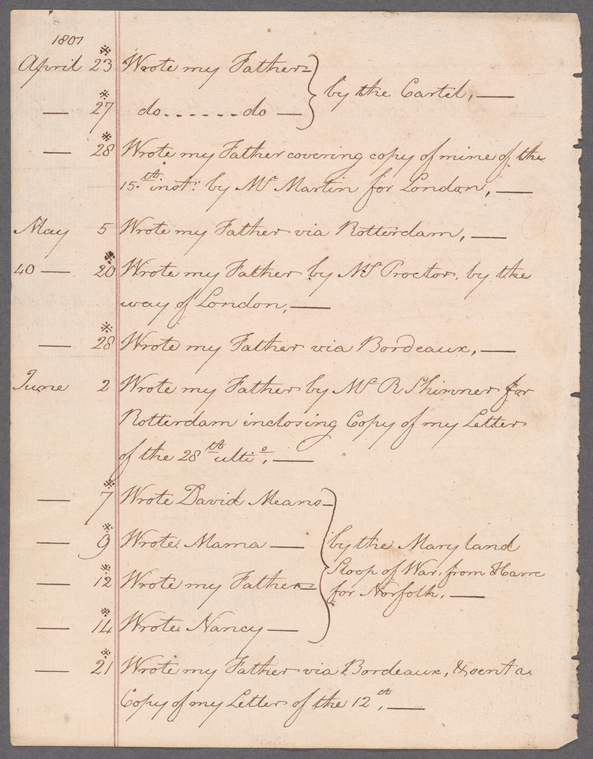 1801
April 23 Wrote my Father
by the Cartel,
27 do......do
28 Wrote my Father covering copy of mine of the
15.th inst. by Mr. Martin for London,
May 5 Wrote my Father via Rotterdam,
40 20 Wrote my Father by Mr. Proctor by the
way of London,
28 Wrote my Father via Bordeaux,
June 2 Wrote my Father by Mr. R Skinner for
Rotterdam inclosing Copy of my Letter
of the 28th ulto.
7 Wrote David Means
9 Wrote Mama
by the Maryland
12 Wrote my Father
Sloop of War from Havre
for Norfolk.
14 Wrote Nancy
21 Wrote my Father via Bordeaux, & sent a
Copy of my Letter of the 12th.